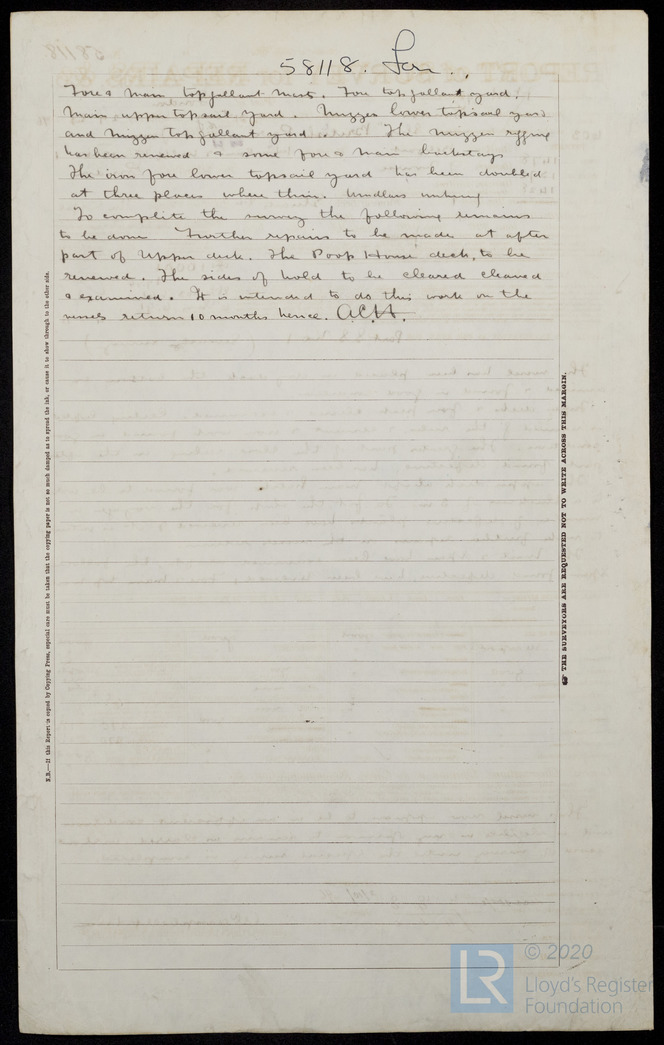 58118. Lon.
Fore & Main topgallant mast. Fore topgallant yard.
Main upper topsail yard. Mizzen lower topsail yard
and Mizzen topgallant yard. The Mizzen rigging
has been renewed & some fore & main backstays
The iron fore lower topsail yard has been doubled
at three places where thin. Windlass
To complete the survey the following remains
to be done Further repairs to be made at after
part of Upper deck. The Poop House deck, to be
renewed. The sides of hold to be cleared cleaned
& examined. It is intended to do this work on the
vessels return 10 months hence. A.C.H.
N.B.—If this Report is copied by Copying Press, especial care must be taken that the copying paper is not so much damped as to spread the ink, or cause it to show through to the other side.
THE SURVEYORS ARE REQUESTED NOT TO WRITE ACROSS THIS MARGIN.
LR
© 2020
Lloyd's Register
Foundation